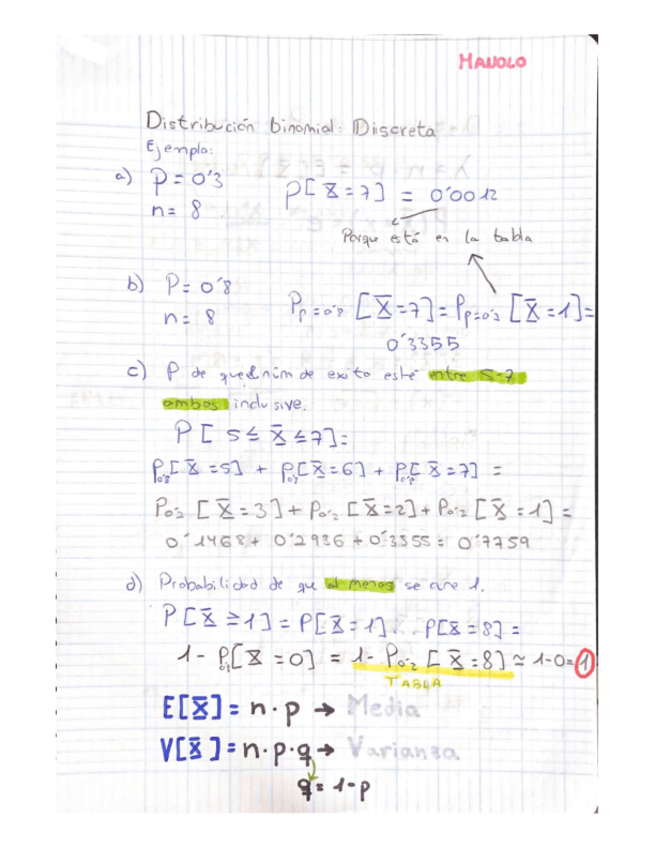 MANOLO
Distribución binomial: Discreta
Ejemplo:
a) P = 0'3 P[X̄ = 7] = 0'0012
n = 8
Porque está en la tabla
b) P = 0'8
n = 8 P p=0'8 [X̄ = 7] = P p=0'2 [X̄ = 1] =
0'3355
c) P de que el núm de exito esté entre 5-7
ambos inclusive.
P[5 ≤ X̄ ≤ 7]:
P0'8[X̄ = 5] + P0'8[X̄ = 6] + P0'8[X̄ = 7] =
P0'2 [X̄ = 3] + P0'2 [X̄ = 2] + P0'2 [X̄ = 1] =
0'1468 + 0'2936 + 0'3355 = 0'7759
d) Probabilidad de que al menos se cure 1.
P[X̄ ≥ 1] = P[X̄ = 1] ... P[X̄ = 8] =
1 - P[X̄ = 0] = 1 - P0'2 [X̄ = 8] ≃ 1-0 = 1
TABLA
E[X̄] = n · p → Media
V[X̄] = n · p · q → Varianza
q = 1 - p